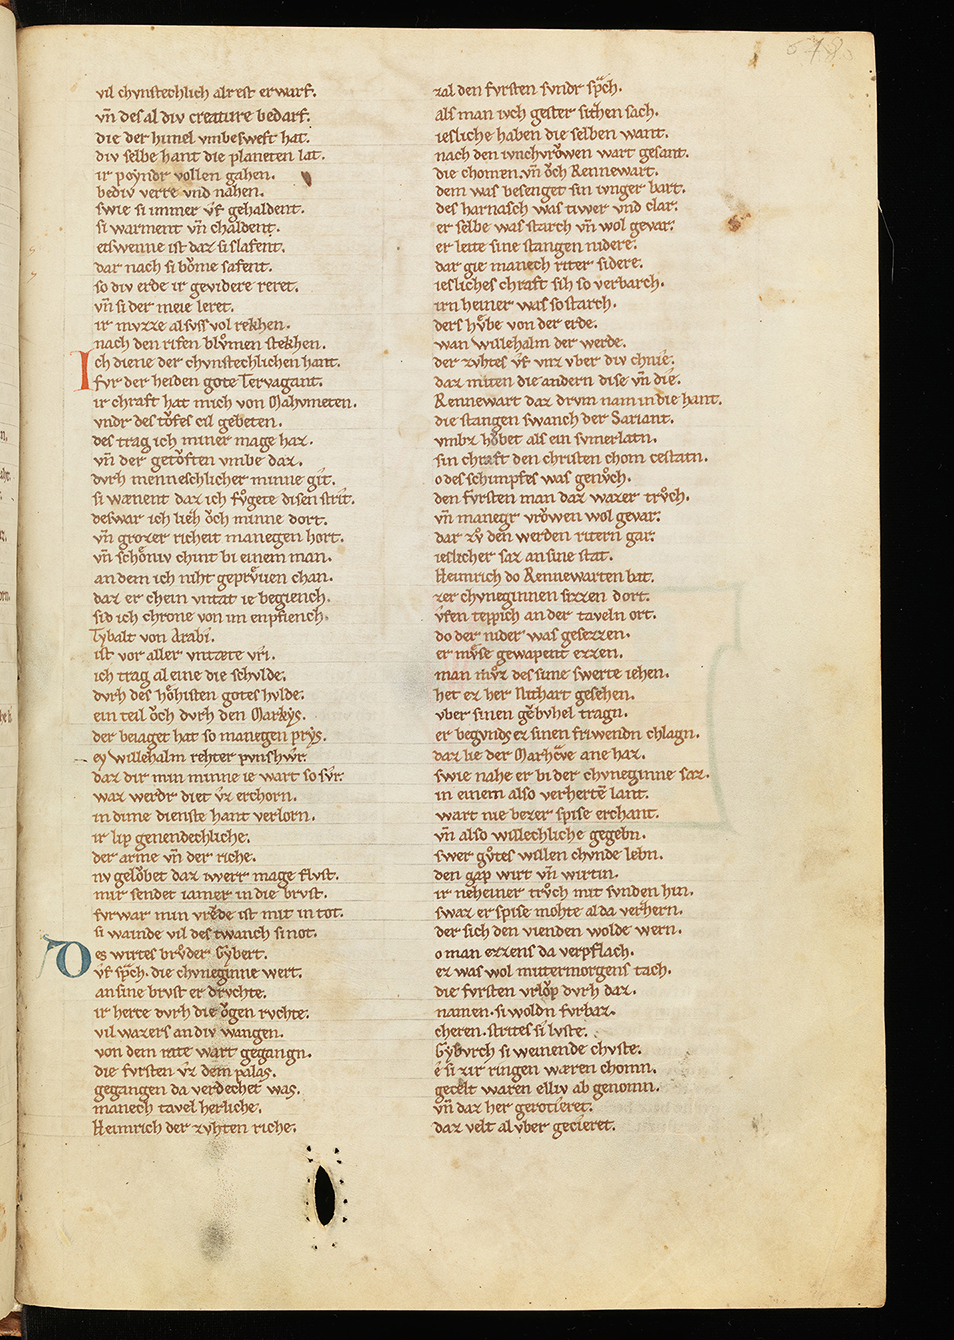 vil chvnstechlich alrest erwarf.
vn̄ des al div creature bedarf.
die der himel vmbesweft hat.
div selbe hant die planeten lat.
ir poẏndr vollen gahen.
bediv verre vnd nahen.
swie si immer v̂f gehaldent.
si warment vn̄ chaldent.
etswenne ist daz si slafent.
dar nach si bo̊me safent.
so div erde ir gevidere reret.
vn̄ si der meie leret.
ir mvzze alsvss vol rekhen.
nach den rifen blv̊men stekhen.
Ich diene der chvnstechlichen hant.
fvr der heiden gote Tervagant.
ir chraft hat mich von Mahvmeten.
vndr des to̊fes cil gebeten.
des trag ich miner mage haz.
vn̄ der geto̊ften vmbe daz.
dvrh menneschlicher minne git.
si wænent daz ich fv̊gete disen strit.
deswar ich liêh o̊ch minne dort.
vn̄ grozer richeit manegen hort.
vn̄ schôniv chint bi einem man.
an dem ich niht geprv̂uen chan.
daz er chein vntat ie begiench.
sid ich chrone von im enpfiench.
Tẏbalt von Arabi.
ist vor aller vntæte vri.
ich trag al eine die schvlde.
dvrh des hôhisten gotes hvlde.
ein teil o̊ch dvrh den Markẏs.
der beiaget hat so manegen prẏs.
eẏ willehalm rehter pvnshv̂r.
daz dir min minne ie wart so sv̂r.
waz werdr diet v̂z erchorn.
in dime dienste hant verlorn.
ir lip genendechliche.
der arme vn̄ der riche.
nv gelo̊bet daz iwerr mage flvst.
mir sendet iamer in die brvst.
fvrwar min vrêde ist mit in tot.
si wainde vil des twanch si not.
Des wirtes brv̊der Gẏbert.
v̂f sp̄ch. die chvneginne wert.
an sine brvst er drvchte.
ir herce dvrh die o̊gen rvchte.
vil wazers an div wangen.
von dem rate wart gegangn.
die fvrsten vz dem palas.
gegangen da verdechet was.
manech tavel herliche.
Heimrich der zvhten riche.
zal den fvrsten svndr sp̄ch.
als man ivch gester sithen sach.
iesliche haben die selben want.
nach den ivnchvro̊wen wart gesant.
die chomen. vn̄ o̊ch Rennewart.
dem was besenget sin ivnger bart.
des harnasch was tiwer vnd clar.
er selbe was starch vn̄ wol gevar.
er leite sine stangen nidere.
dar gie manech riter sidere.
iesliches chraft sih so verbarch.
irn heiner was so starch.
ders hv̂be von der erde.
wan willehalm der werde.
der zvhtes v̂f vnz vber div chnie.
daz miten die andern dise vn̄ die.
Rennewart daz drvm nam in die hant.
die stangen swanch der Sariant.
vmbz ho̊bet als ein svmerlatn.
sin chraft den christen chom cestatn.
o des schimpfes was genv̊ch.
den fvrsten man daz wazer trv̊ch.
vn̄ manegr vro̊wen wol gevar.
dar zv̊ den werden ritern gar.
ieslicher saz an sine stat.
Heimrich do Rennewarten bat.
zer chvneginnen sizzen dort.
v̂fen teppich an der taveln ort.
do der nider was gesezzen.
er mv̊se gewapent ezzen.
man mv̊z des sime swerte iehen.
het ez her Nithart gesehen.
vber sinen ge̊bvhel tragn.
er begvnds ez sinen friwendn chlagn.
daz lie der Marhcave ane haz.
swie nahe er bi der chvneginne saz.
in einem also verhertē lant.
wart nie bezer spise erchant.
vn̄ also willechliche gegebn.
swer gv̊tes willen chvnde lebn.
den gap wirt vn̄ wirtin.
ir neheiner trv̊ch mit svnden hin.
swaz er spise mohte al da verhern.
der sich den vienden wolde wern.
o man ezzens da verpflach.
ez was wol mittermorgens tach.
die fvrsten vrlo̊p dvrh daz.
namen. si woldn fvrbaz.
cheren. strites si lvste.
Gẏbvrch si weinende chvste.
ê si zir ringen wæren chomn.
gecelt waren elliv ab genomn.
vn̄ daz her gerotieret.
daz velt al vber gecieret.